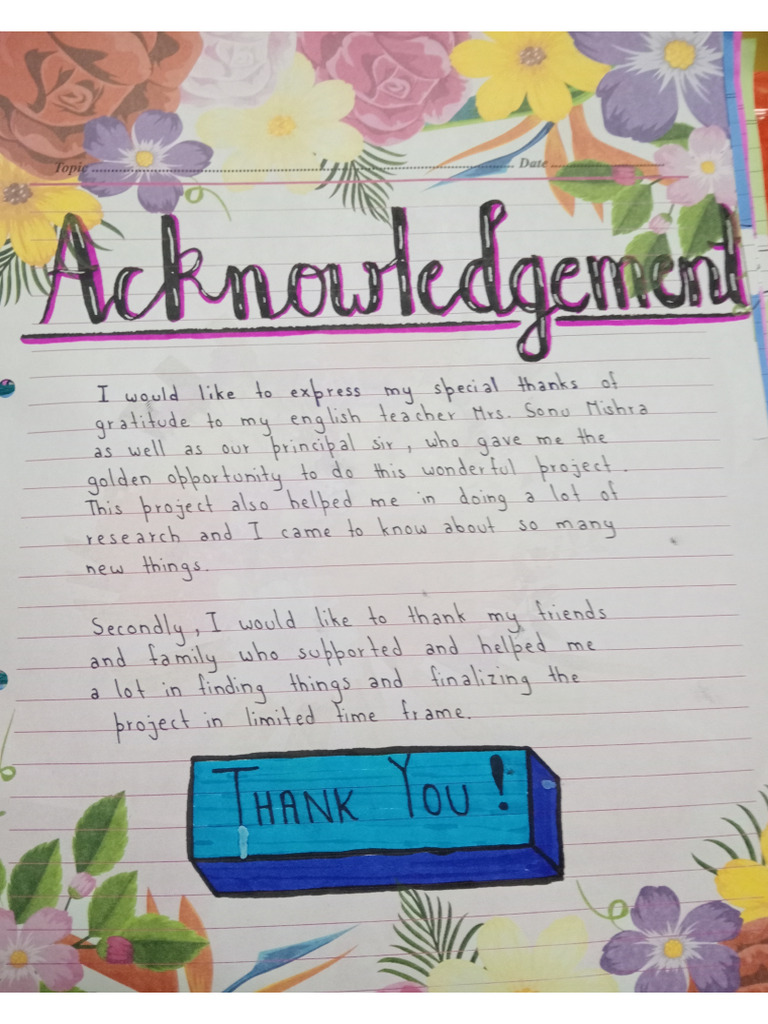 Topic ........................................ Date ....................
Acknowledgement
I would like to express my special thanks of
gratitude to my english teacher Mrs. Sonu Mishra
as well as our principal sir, who gave me the
golden opportunity to do this wonderful project.
This project also helped me in doing a lot of
research and I came to know about so many
new things.
Secondly, I would like to thank my friends
and family who supported and helped me
a lot in finding things and finalizing the
project in limited time frame.
THANK YOU!